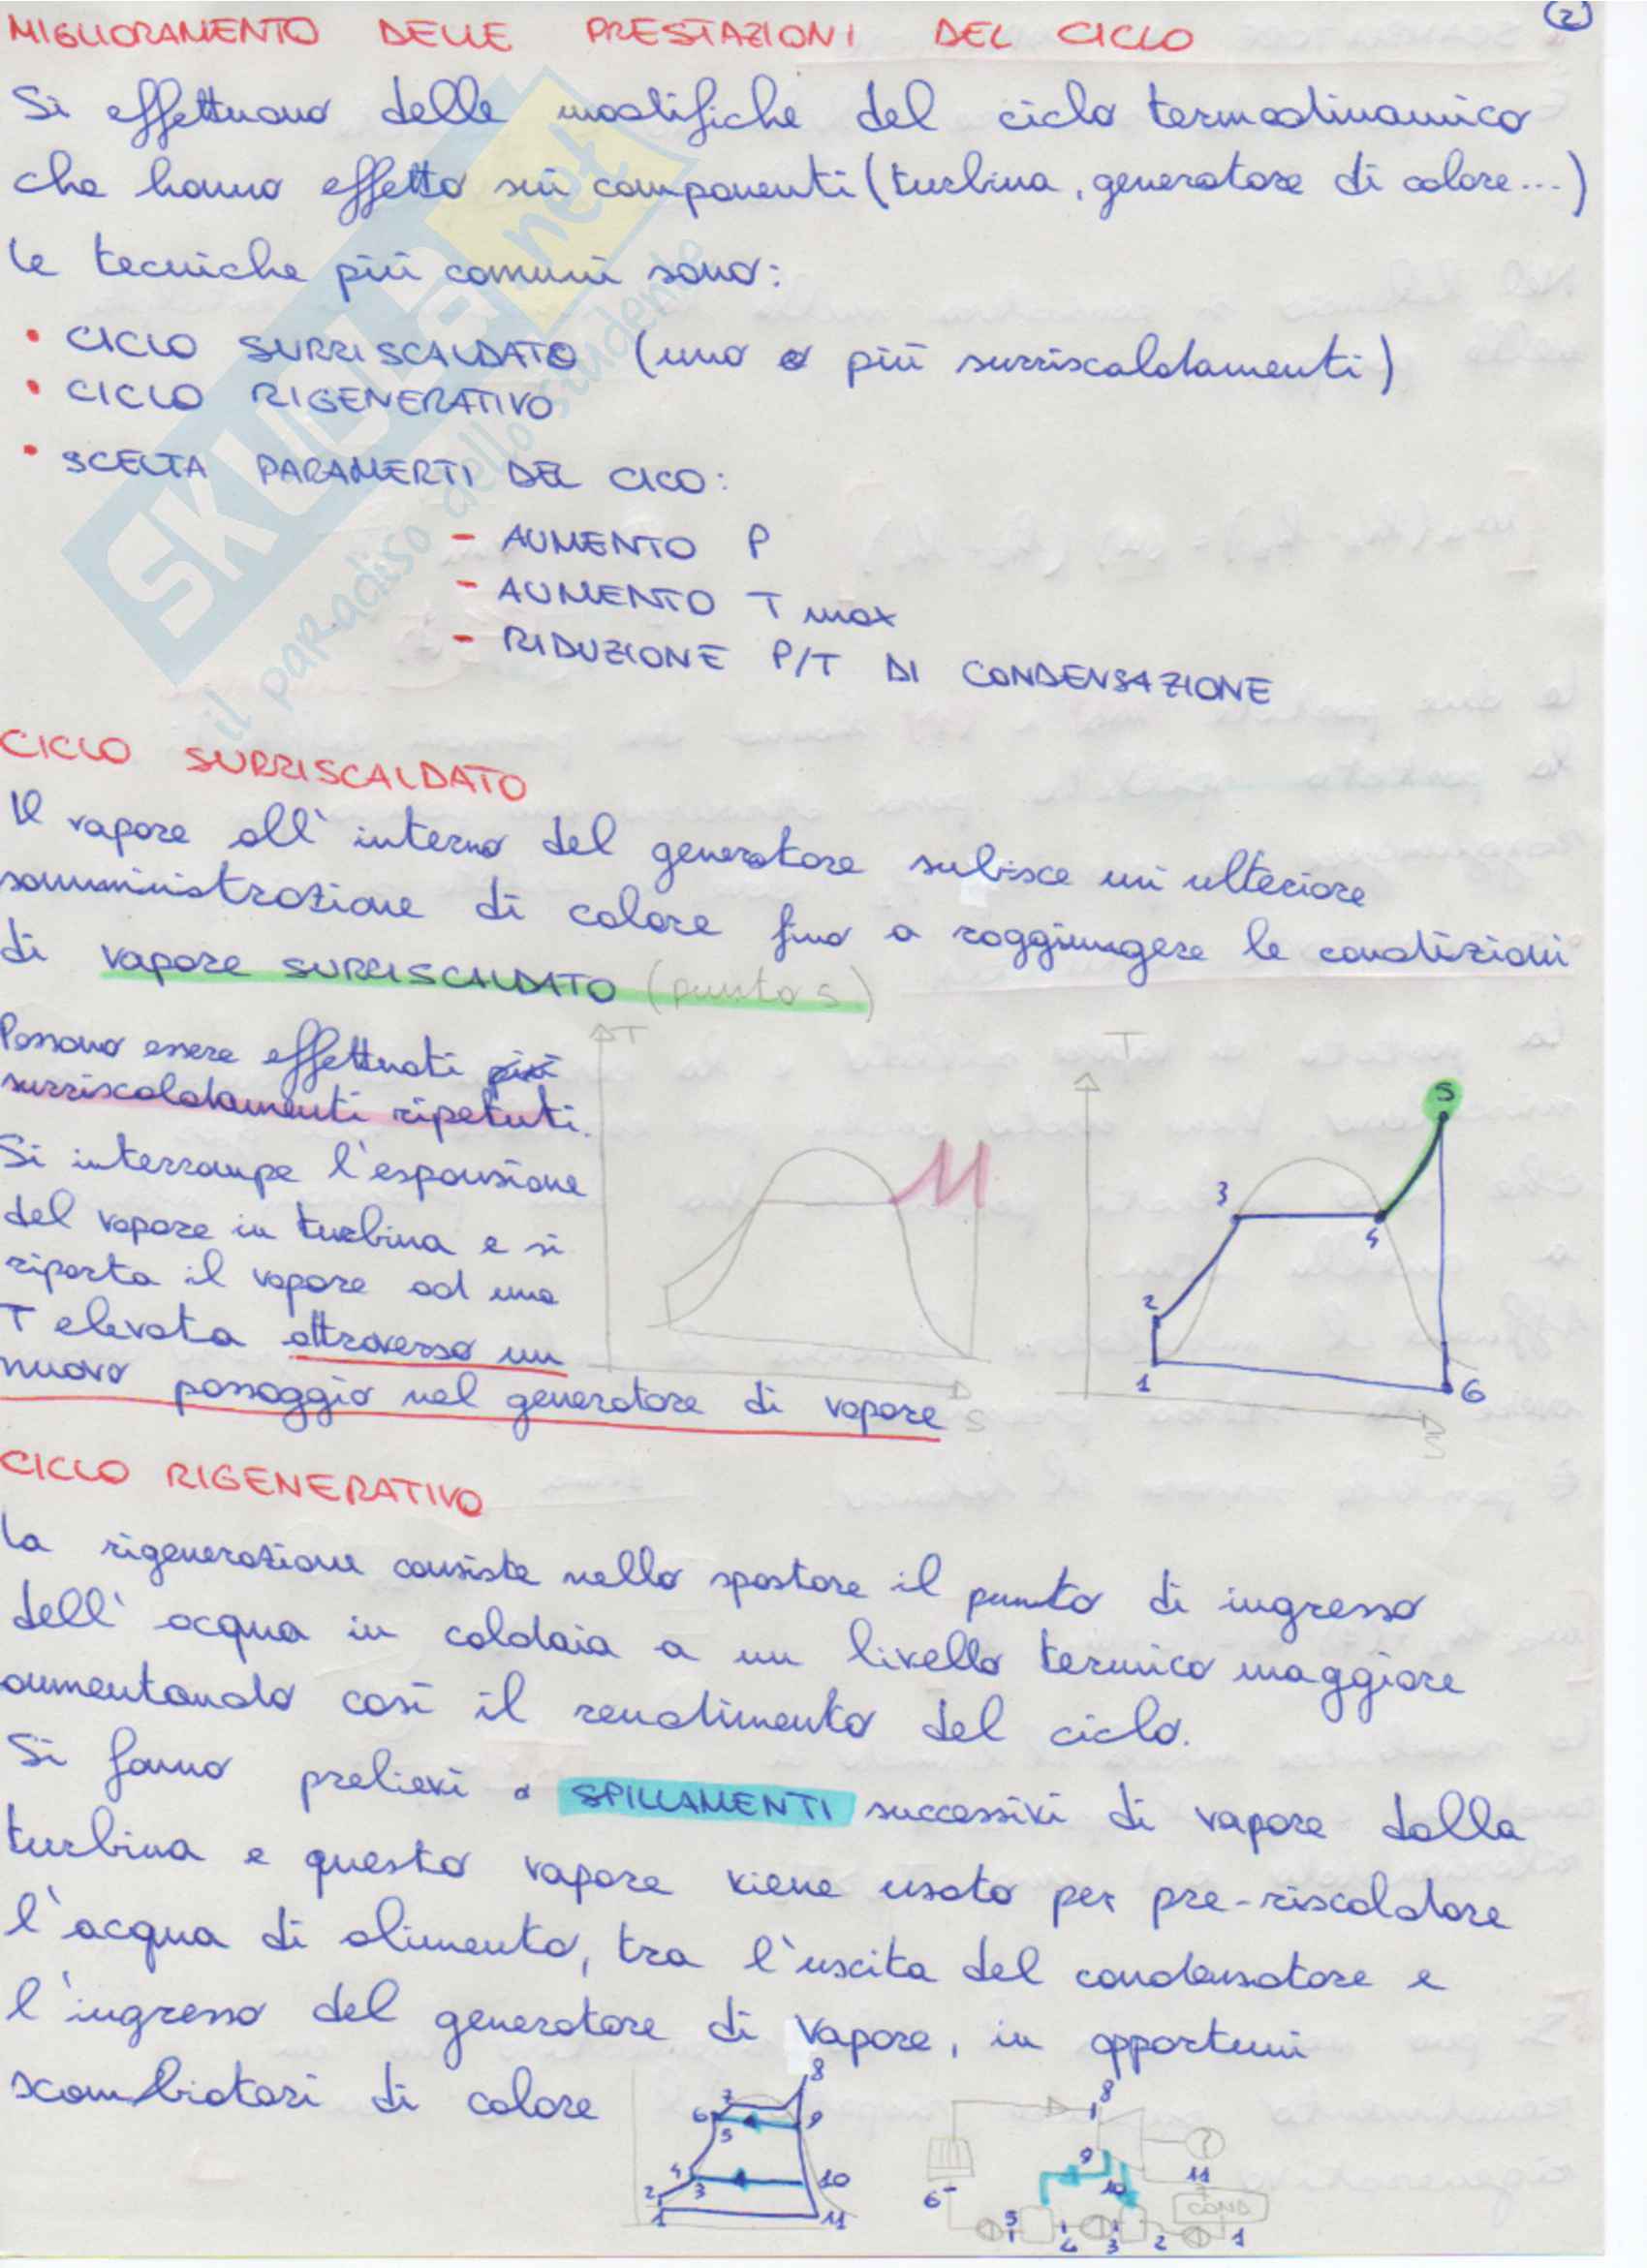 2
MIGLIORAMENTO DELLE PRESTAZIONI DEL CICLO
Si effettuano delle modifiche del ciclo termodinamico
che hanno effetto sui componenti (turbina, generatore di calore...)
le tecniche più comuni sono:
• CICLO SURRISCALDATO (uno o più surriscaldamenti)
• CICLO RIGENERATIVO
• SCELTA PARAMERTI DEL CICO:
- AUMENTO P
- AUMENTO T max
- RIDUZIONE P/T DI CONDENSAZIONE
SKUOLA.net
il paradiso dello studente
CICLO SURRISCALDATO
Il vapore all'interno del generatore subisce un'ulteriore
somministrazione di calore fino a raggiungere le condizioni
di vapore SURRISCALDATO (punto 5)
Possono essere effettuati più
surriscaldamenti ripetuti.
Si interrompe l'espansione
del vapore in turbina e si
riporta il vapore ad una
T elevata attraverso un
nuovo passaggio nel generatore di vapore
T
S
T
5
3
4
2
1
6
S
CICLO RIGENERATIVO
la rigenerazione consiste nello spostare il punto di ingresso
dell'acqua in caldaia a un livello termico maggiore
aumentando così il rendimento del ciclo.
Si fanno prelievi o SPILLAMENTI successivi di vapore dalla
turbina e questo vapore viene usato per pre-riscaldare
l'acqua di alimento, tra l'uscita del condensatore e
l'ingresso del generatore di vapore, in opportuni
scambiatori di calore
8
7
6
9
5
4
10
2
3
1
11
8
9
11
10
6
COND
5
4
3
2
1